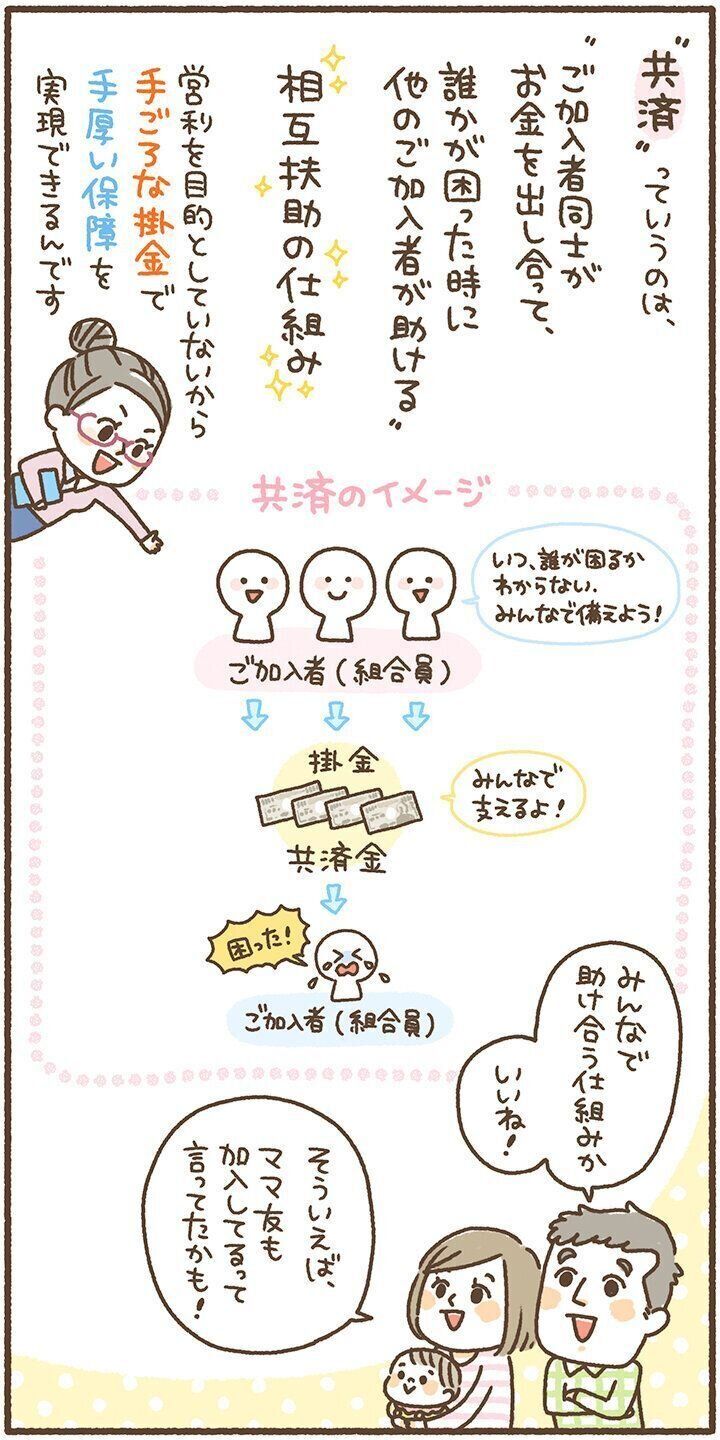 “共済”っていうのは、
“ご加入者同士が
お金を出し合って、
誰かが困った時に
他のご加入者が助ける”
相互扶助の仕組み
営利を目的としていないから
手ごろな掛金で
手厚い保障を
実現できるんです
共済のイメージ
いつ、誰が困るか
わからない.
みんなで備えよう!
ご加入者(組合員)
掛金
みんなで
支えるよ!
共済金
困った!
ご加入者(組合員)
みんなで
助け合う仕組みか
いいね!
そういえば、
ママ友も
加入してるって
言ってたかも!